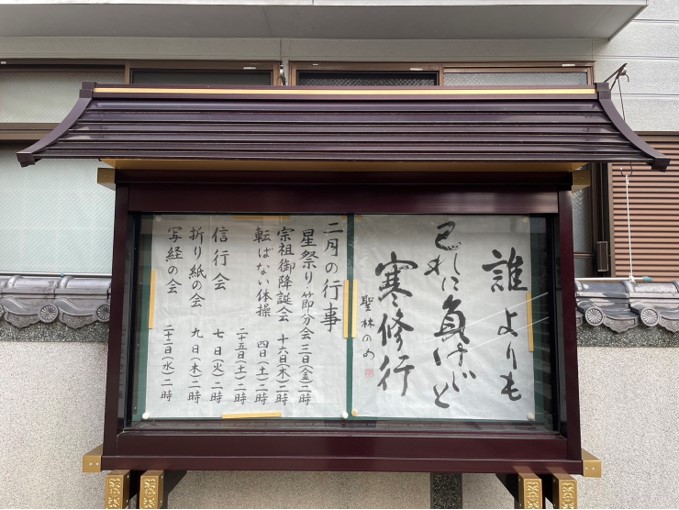 誰よりも
己れに負けじと
寒修行
二月の行事
星祭り節分会 三日(金)二時
宗祖御降誕会 十六日(木)二時
転ばない体操 四日(土)二時
二十五日(土)二時
信行会 七日(火)二時
折り紙の会 九日(木)二時
写経の会 二十二日(水)二時